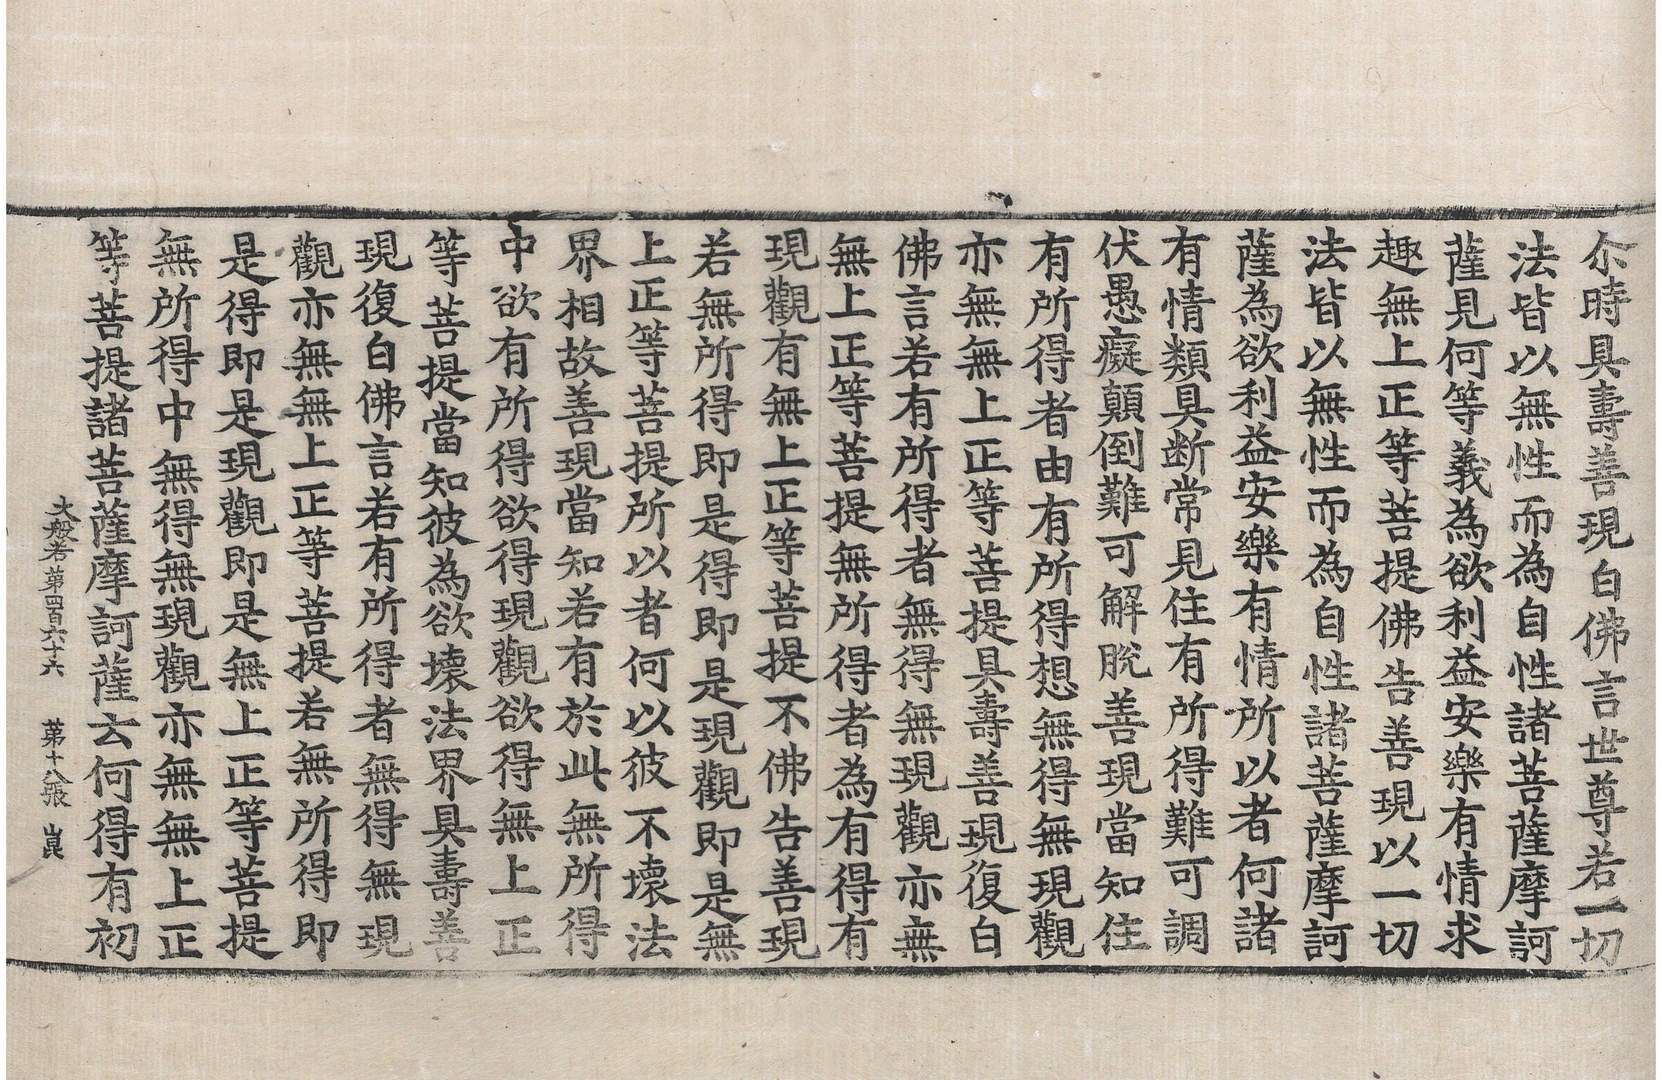 尒時具壽善現白佛言世尊若一切
法皆以無性而為自性諸菩薩摩訶
薩見何等義為欲利益安樂有情求
趣無上正等菩提佛告善現以一切
法皆以無性而為自性諸菩薩摩訶
薩為欲利益安樂有情所以者何諸
有情類具断常見住有所得難可調
伏愚癡顛倒難可解脫善現當知住
有所得者由有所得想無得無現觀
亦無無上正等菩提具壽善現復白
佛言若有所得者無得無現觀亦無
無上正等菩提無所得者為有得有
現觀有無上正等菩提不佛告善現
若無所得即是得即是現觀即是無
上正等菩提所以者何以彼不壞法
界相故善現當知若有於此無所得
中欲有所得欲得現觀欲得無上正
等菩提當知彼為欲壞法界具壽善
現復白佛言若有所得者無得無現
觀亦無無上正等菩提若無所得即
是得即是現觀即是無上正等菩提
無所得中無得無現觀亦無無上正
等菩提諸菩薩摩訶薩云何得有初
大般若第四百六十六 第十八張 崑